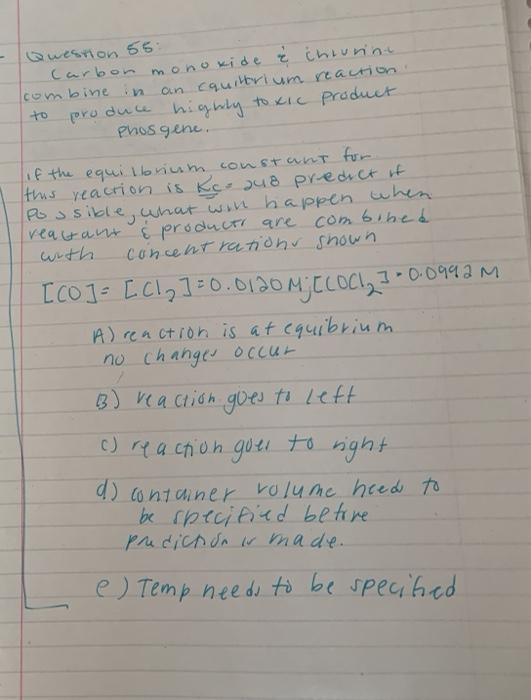 Question 55:
Carbon monoxide & chlorine
combine in an equilibrium reaction
to produce highly toxic product
phosgene.
if the equilibrium constant for
this reaction is Kc = 248 predict if
possible, what will happen when
reactant & products are combined
with concentrations shown
[CO] = [Cl₂] = 0.0120 M; [COCl₂] = 0.0992 M
A) reaction is at equibrium
no changes occur
B) reaction goes to left
c) reaction goes to right
d) container volume needs to
be specified before
prediction is made.
e) Temp needs to be specified